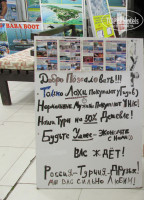 BABA BOOT
Добро Пожаловать!!!
Только Лохи покупают у Гидов)
Нормальные Мужики Покупают У НАС!
Наши Туры на 50% Дешевле!
Будьте Умнее - Экономьте
с Нами))
ВАС ЖДЁТ!
Россия-Турция-Друзья!
МЫ ВАС СИЛЬНО ЛЮБИМ!